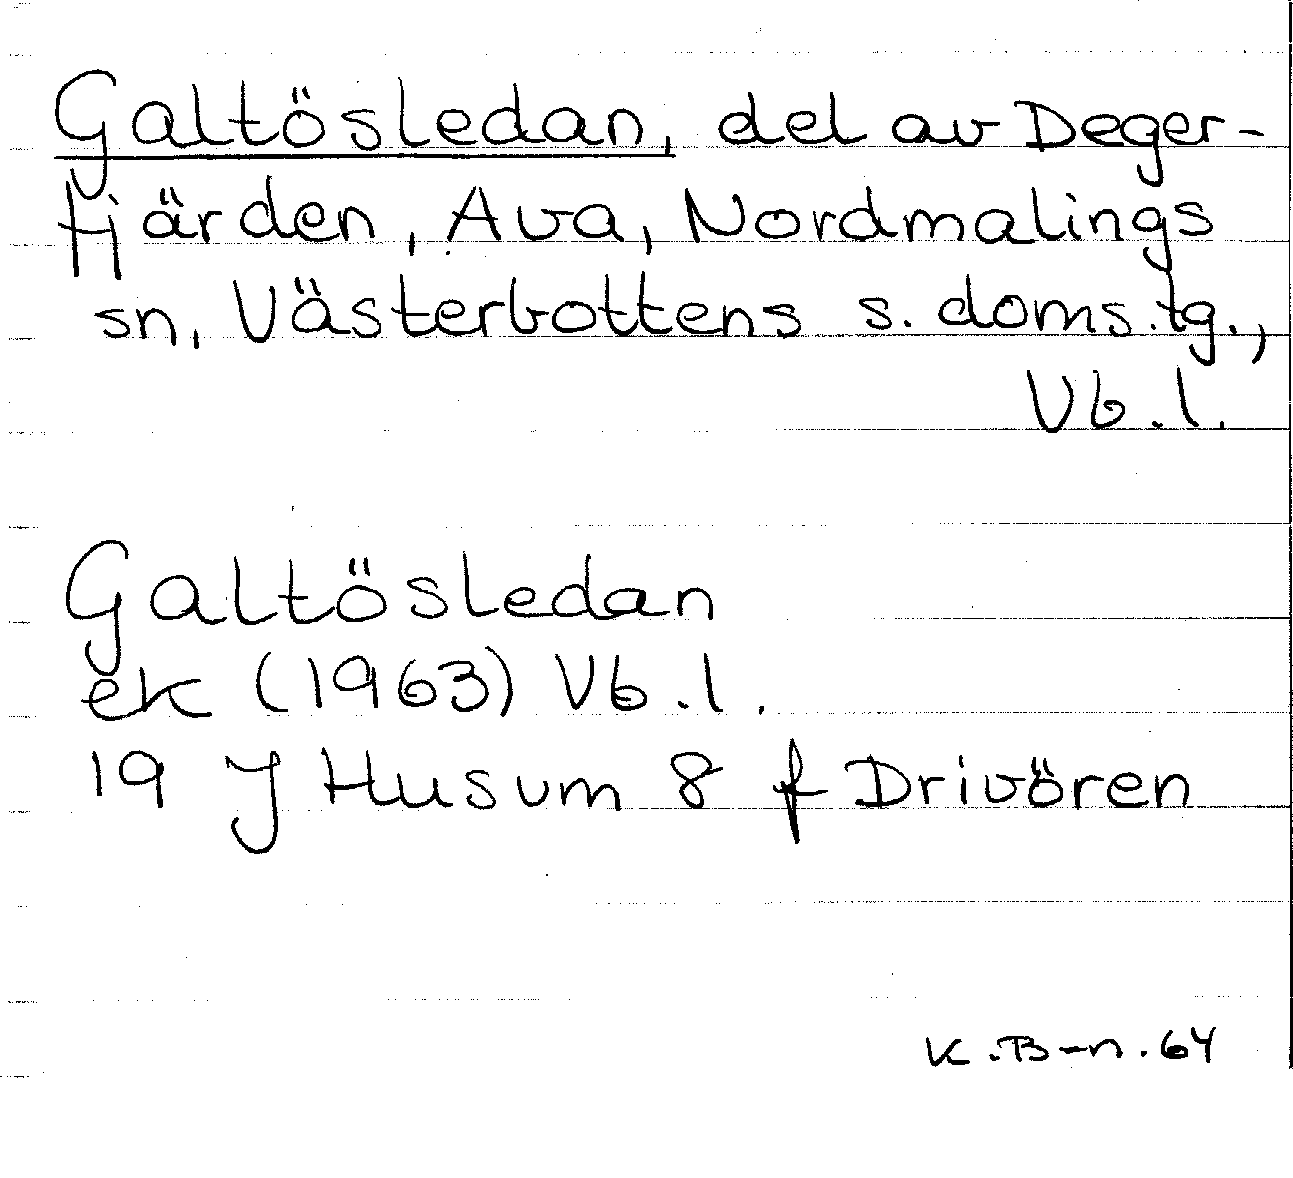 Galtösledan, del av Deger-
fjärden, Ava, Nordmalings
sn, Västerbottens s. doms.tg.,
Vb.l.
Galtösledan
ek (1963) Vb.l.
19 J Husum 8 f Drivören
K.B-n.64